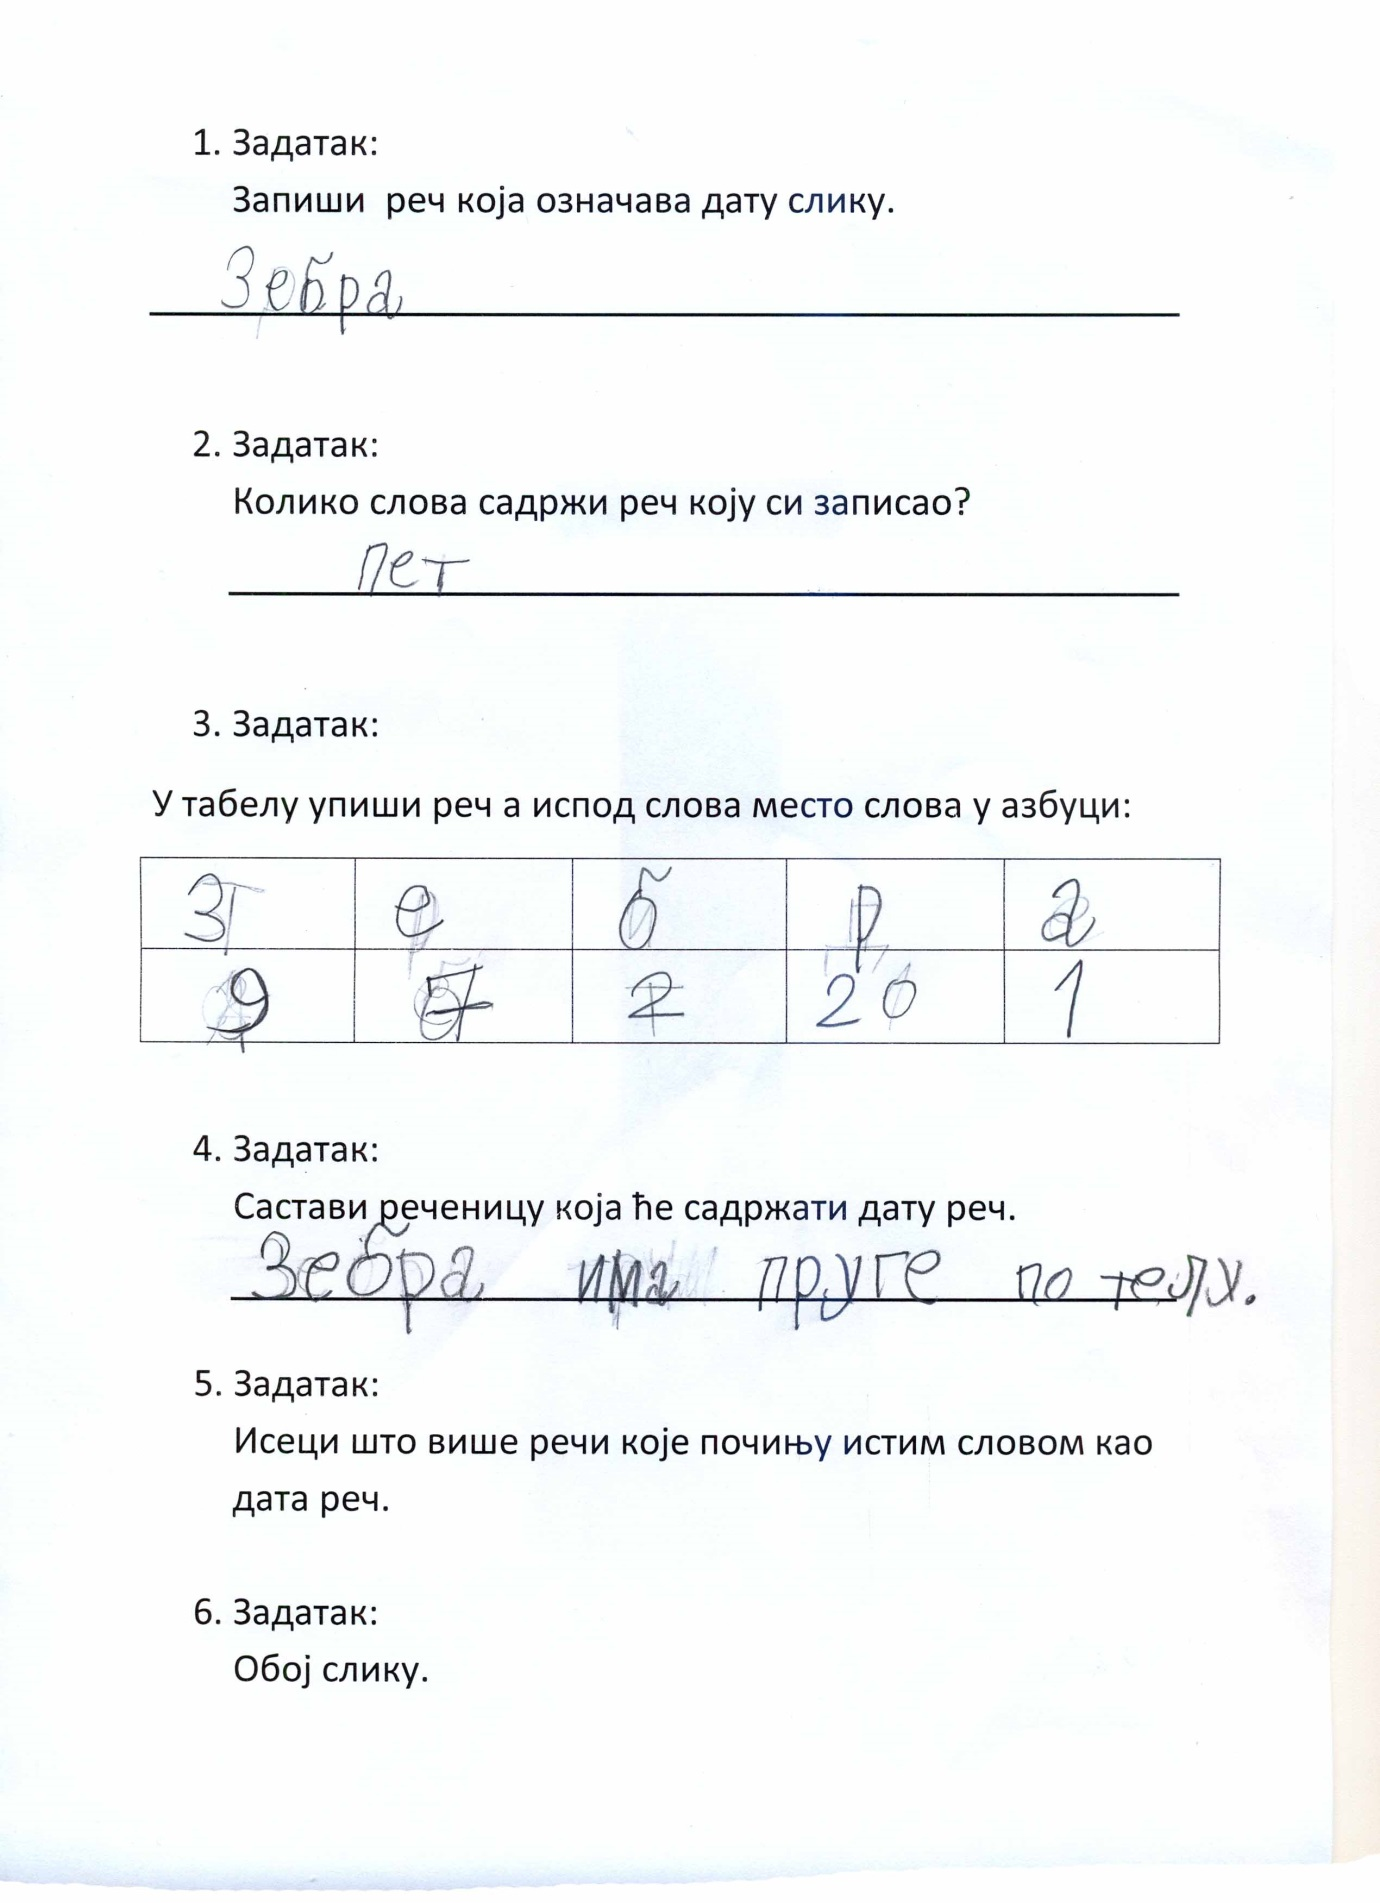 1. Задатак:
Запиши реч која означава дату слику.
Зебра
2. Задатак:
Колико слова садржи реч коју си записао?
пет
3. Задатак:
У табелу упиши реч а испод слова место слова у азбуци:
З е б р а
9 7 2 20 1
4. Задатак:
Састави реченицу која ће садржати дату реч.
Зебра има пруге по телу.
5. Задатак:
Исеци што више речи које почињу истим словом као
дата реч.
6. Задатак:
Обој слику.